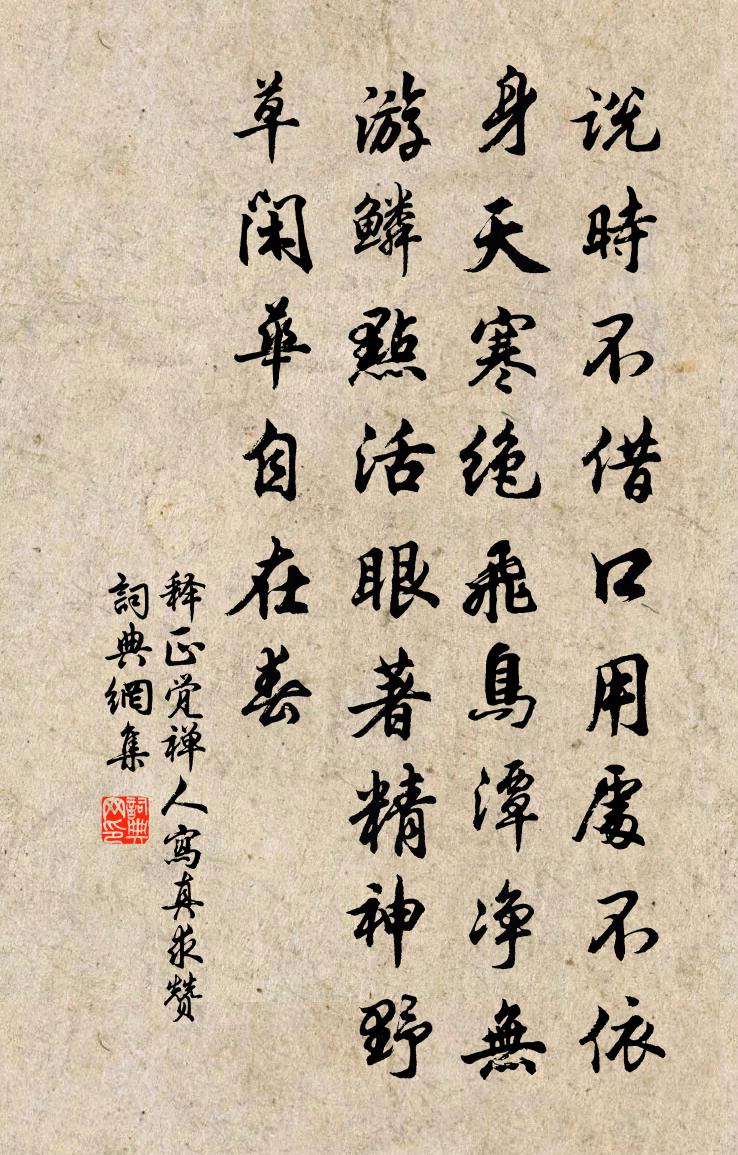 説時不借口用處不依
身天寒絶飛鳥潭净無
游鱗點活眼著精神野
草閑華自在春
释正觉禅人寫真求赞
詞典網集
詞典网印